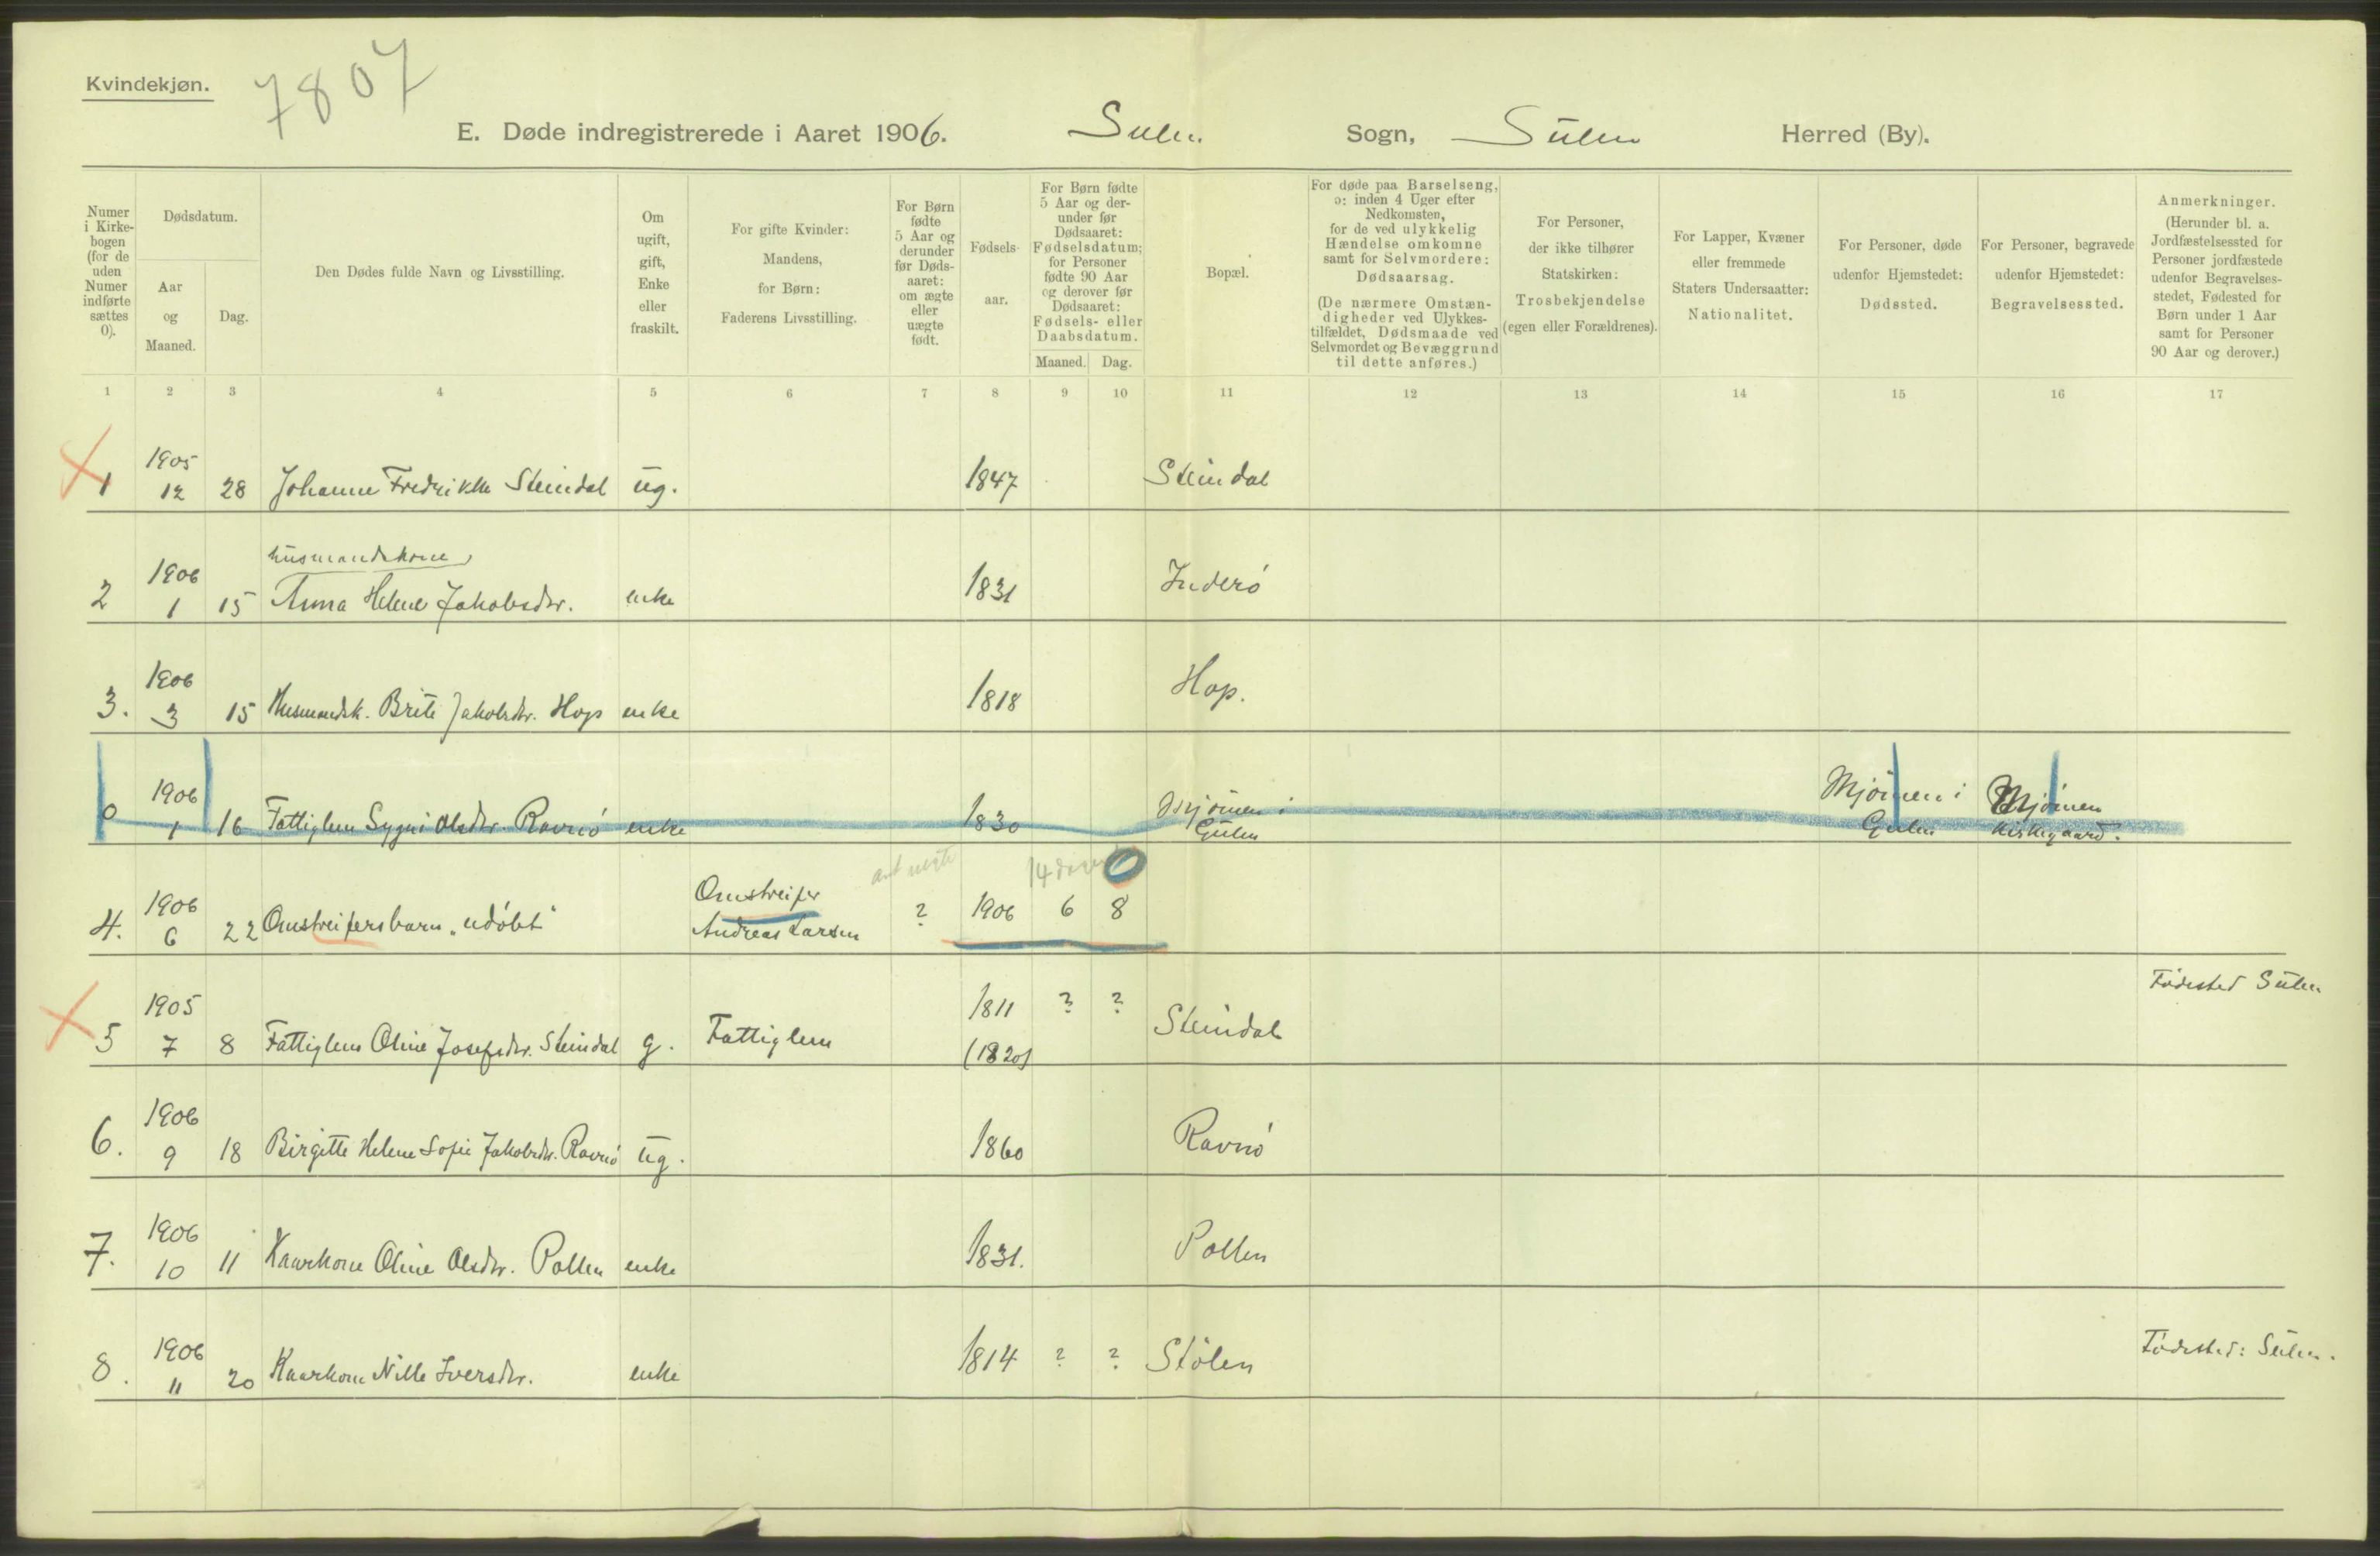 Kvindekjøn.
7807
E. Døde indregistrerede i Aaret 1906. Sulen Sogn, Sulen Herred (By).
Numer i Kirkebogen (for de uden Numer indførte sættes 0).
Dødsdatum.
Aar og Maaned.
Dag.
Den Dødes fulde Navn og Livsstilling.
Om ugift, gift, Enke eller fraskilt.
For gifte Kvinder: Mandens, for Børn: Faderens Livsstilling.
For Børn fødte 5 Aar og derunder før Døds-aaret: om ægte eller uægte født.
Fødsels-aar.
For Børn fødte 5 Aar og der-under før Dødsaaret: Fødselsdatum; for Personer fødte 90 Aar og derover før Dødsaaret: Fødsels- eller Daabsdatum.
Maaned. Dag.
Bopæl.
For døde paa Barselseng, ɔ: inden 4 Uger efter Nedkomsten, for de ved ulykkelig Hændelse omkomne samt for Selvmordere: Dødsaarsag.
(De nærmere Omstæn-digheder ved Ulykkes-tilfældet, Dødsmaade ved Selvmordet og Bevæggrund til dette anføres.)
For Personer, der ikke tilhører Statskirken: Trosbekjendelse (egen eller Forældrenes).
For Lapper, Kvæner eller fremmede Staters Undersaatter: Nationalitet.
For Personer, døde udenfor Hjemstedet: Dødssted.
For Personer, begravede udenfor Hjemstedet: Begravelsessted.
Anmerkninger. (Herunder bl. a. Jordfæstelsessted for Personer jordfæstede udenfor Begravelses-stedet, Fødested for Børn under 1 Aar samt for Personer 90 Aar og derover.)
1 2 3 4 5 6 7 8 9 10 11 12 13 14 15 16 17
1 1905 12 28 Johanne Fredrikke Steindal ug. 1847 Steindal
husmandskone
2 1906 1 15 Anna Helene Jakobsdtr. enke 1831 Inderö
3. 1906 3 15 Husmandsk. Brite Jakobsdtr. Hop enke 1818 Hop.
0 1906 1 16 Fattiglem Sygni Olsdtr. Ravnö enke 1830 Mjömen i Gulen Mjömen i Gulen Mjömen kirkegaard.
14 dage 0
4. 1906 6 22 Omstreifersbarn „udöbt" Omstreifer Andreas Larsen ? 1906 6 8
5 1905 7 8 Fattiglem Oline Josefsdtr. Steindal g. Fattiglem 1811 (1820) ? ? Steindal Födested Sulen
6. 1906 9 18 Birgitte Helene Sofie Jakobsdtr. Ravnö ug. 1860 Ravnö
7. 1906 10 11 Kaarkone Oline Olsdtr. Pollen enke 1831. Pollen
8. 1906 11 20 Kaarkone Nille Iversdtr. enke 1814 ? ? Stölen Födested: Sulen.